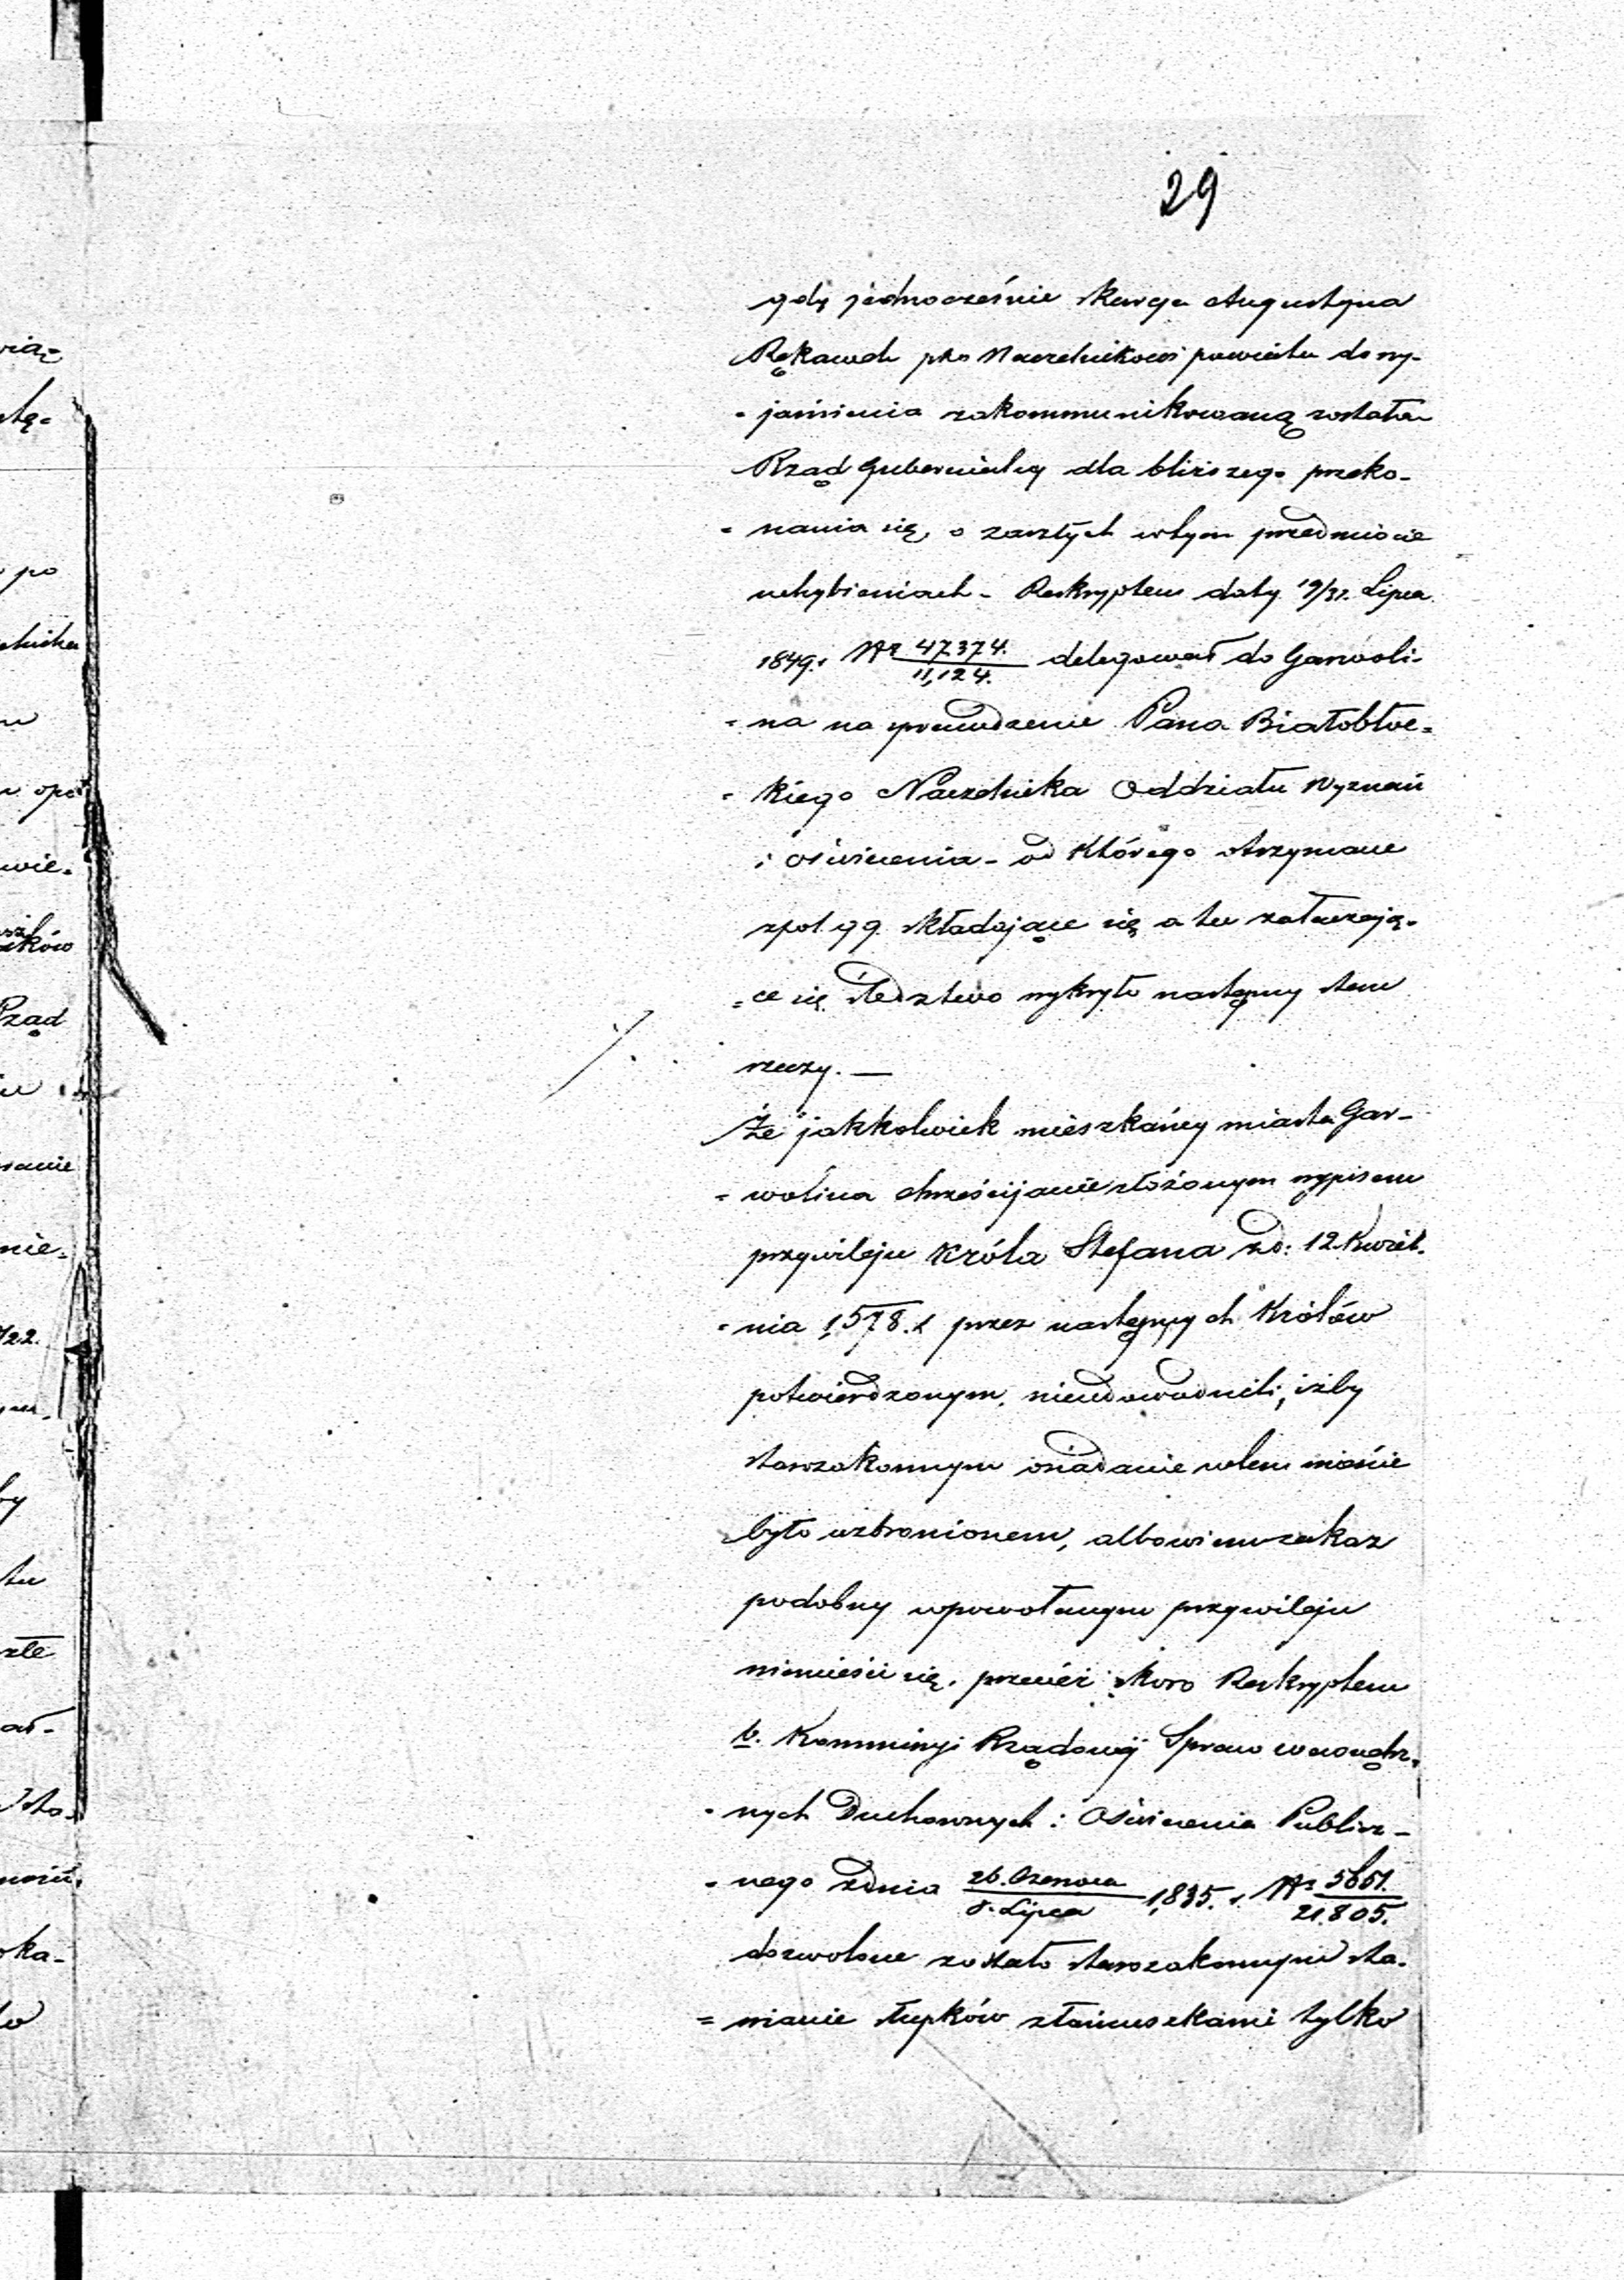 29
gdy jednocześnie skarga Augustyna
Rękawek pko Naczelnikowi powiatu do wy-
- jaśnienia zakommunikowaną została
Rząd Gubernialny dla bliższego przeko-
- nania się, o zaszłych wtym przedmiocie
uchybieniach - Reskryptem daty 19/31. Lipca
1849. r Nr 47374./11,124. delegował do Garwoli-
- na na sprawdzenie Pana Białobłoc-
- kiego Naczelnika Oddziału Wyznań
i oświecenia - od którego otrzymane
składające się a tu załączają-
= ce się śledztwo wykryło następny stan
rzeczy. —
Że jakkolwiek mieszkańcy miasta Gar-
- wolina chrześcijanie złożonym wypisem
przywileju Króla Stefana zd: 12 Kwiet-
- nia 1578. r przez następnych Królów
potwierdzonym, nieudowodnili, iżby
starozakonnym osiadanie wtem mieście
było wzbronionem, albowiem zakaz
podobny wpowołanym przywileju
niemieści się, przecież skoro Reskryptem
b. Kommissyi Rządowéj Spraw wewnętrz-
- nych Duchownych i Oświecenia Publicz-
- nego zdnia 26. Czerwca/8. Lipca 1,835. r. Nr 5651./21.805.
dozwolone zostało starozakonnym sta-
= wianie słupków złańcuszkami tylko